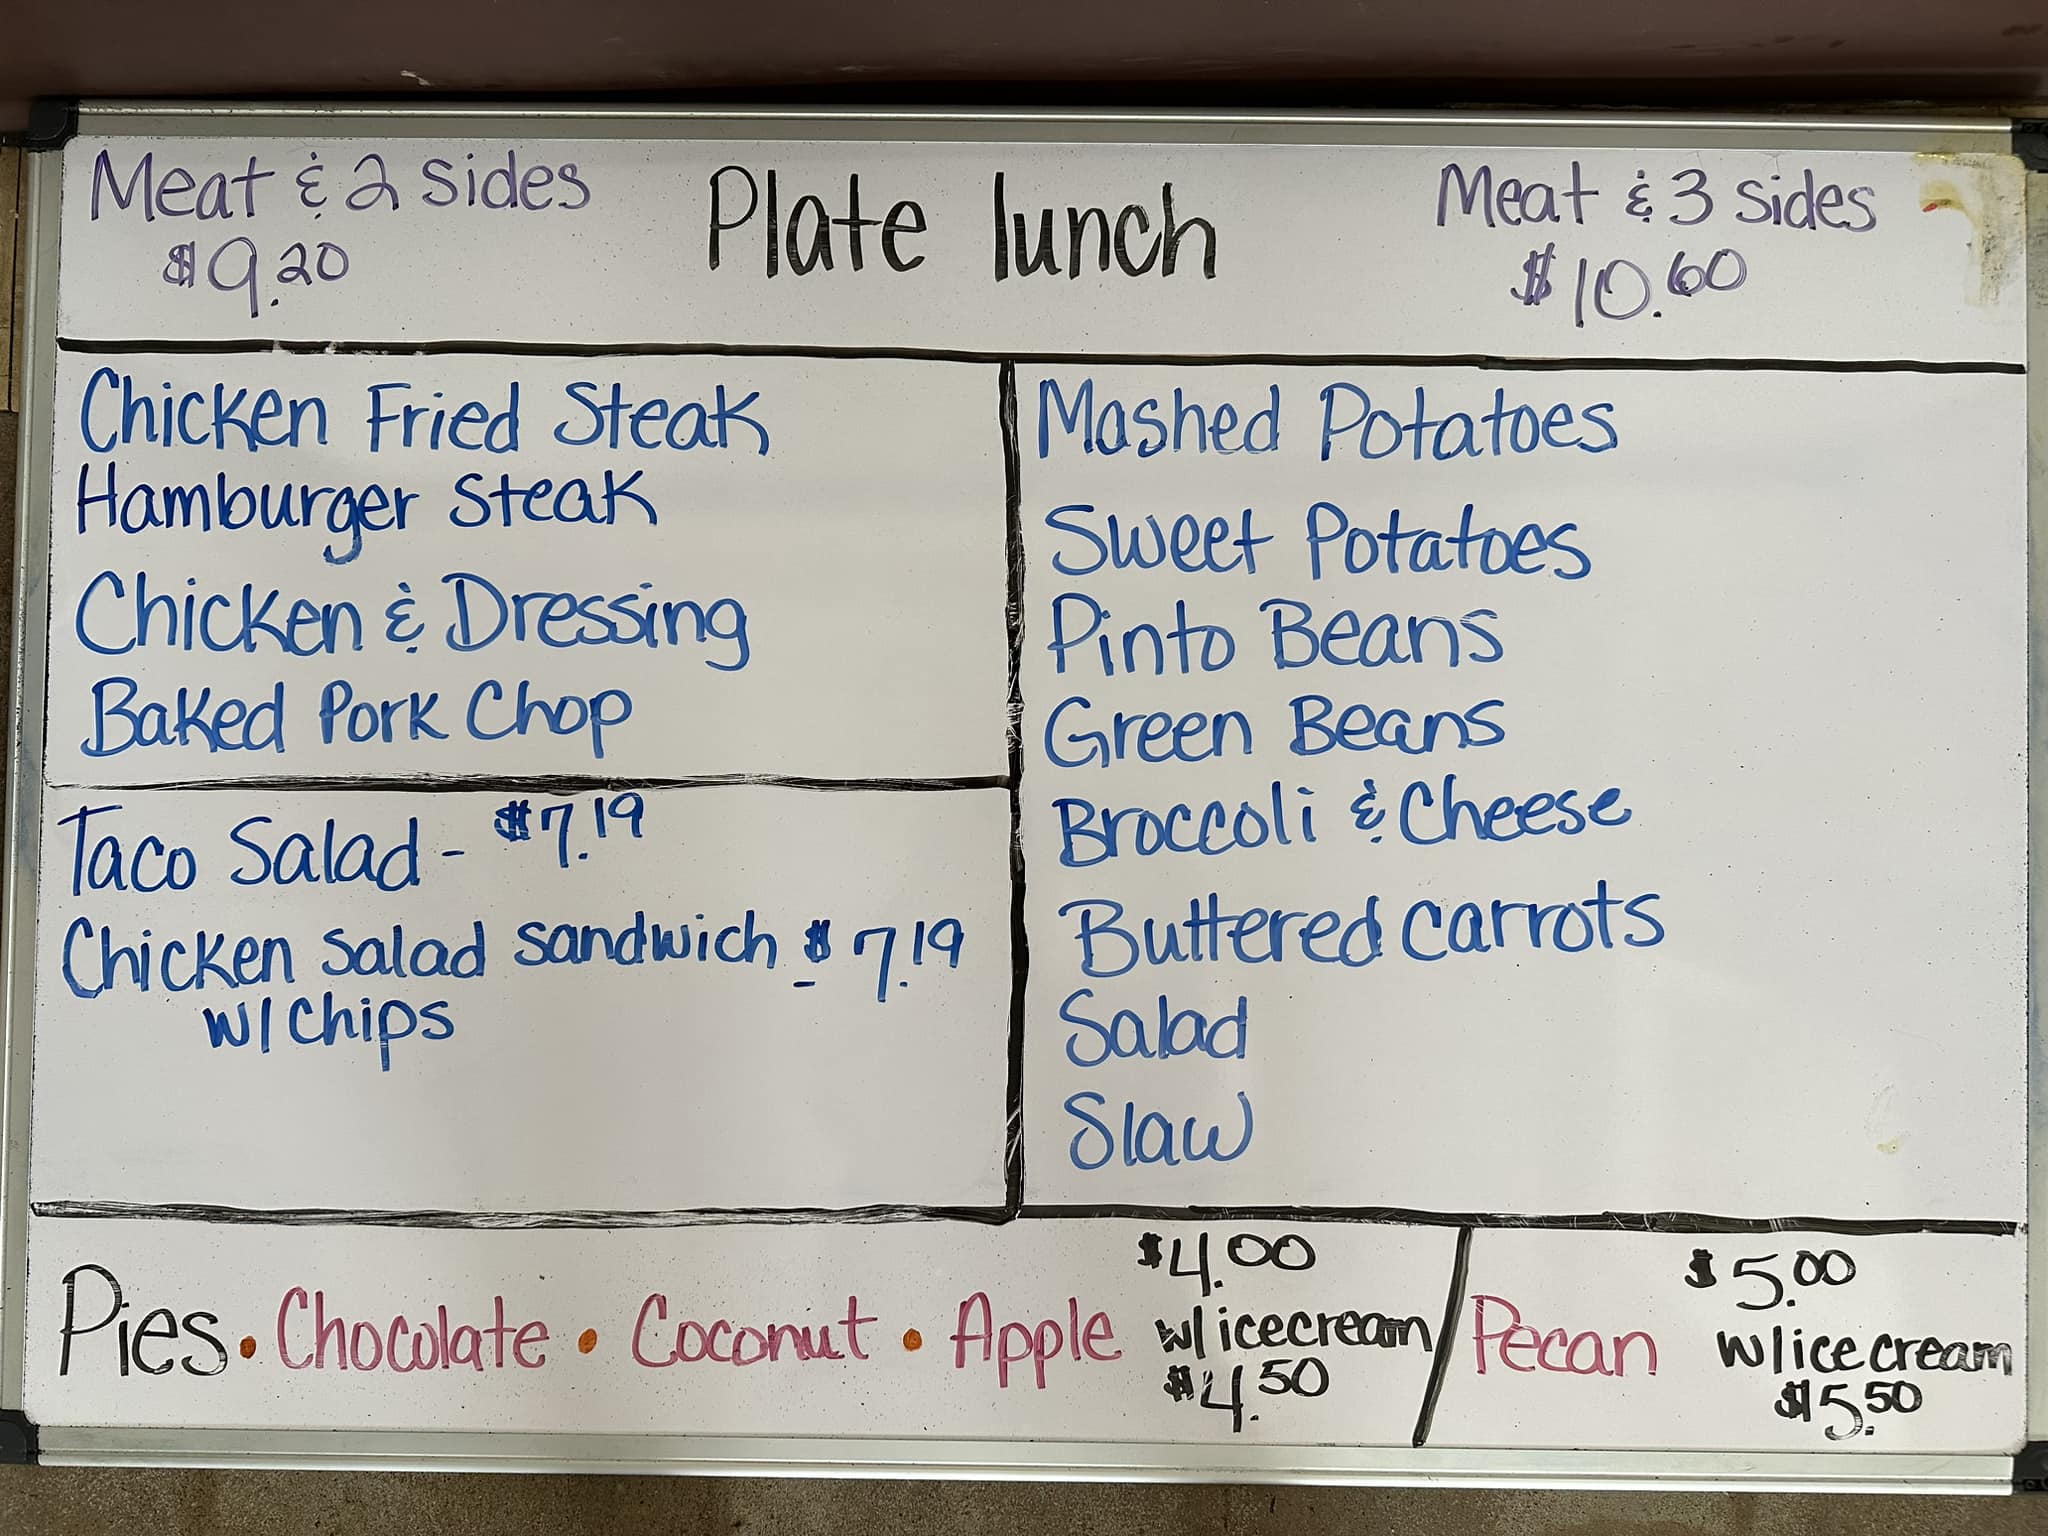 Meat & 2 sides
$9.20
Plate lunch
Meat & 3 sides
$10.60
Chicken Fried Steak
Hamburger Steak
Chicken & Dressing
Baked Pork Chop
Taco Salad - $7.19
Chicken salad sandwich $7.19
w/chips
Mashed Potatoes
Sweet Potatoes
Pinto Beans
Green Beans
Broccoli & Cheese
Buttered carrots
Salad
Slaw
Pies • Chocolate • Coconut • Apple
$4.00
w/icecream
$4.50
Pecan
$5.00
w/ice cream
$5.50